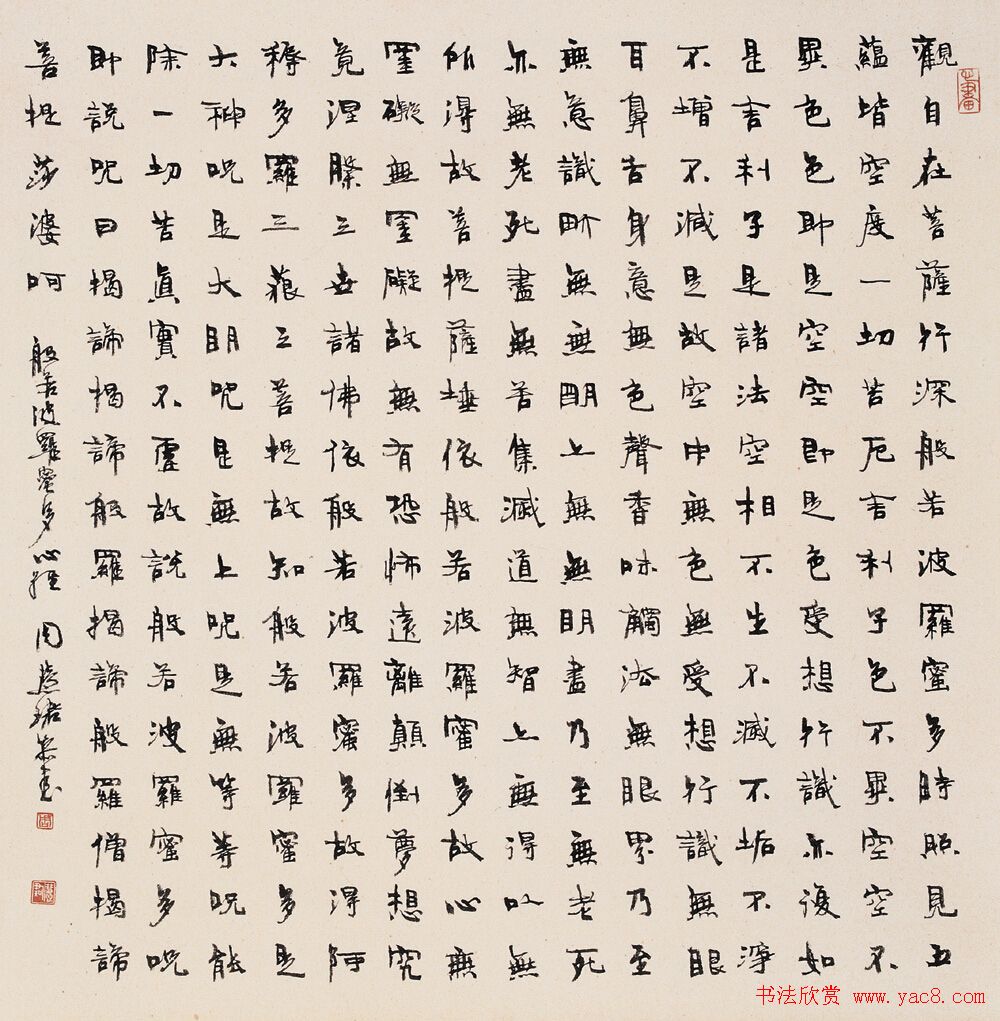 觀自在菩薩行深般若波羅蜜多時照見五
蘊皆空度一切苦厄舍利子色不異空空不
異色色即是空空即是色受想行識亦復如
是舍利子是諸法空相不生不滅不垢不淨
不增不減是故空中無色無受想行識無眼
耳鼻舌身意無色聲香味觸法無眼界乃至
無意識界無無明亦無無明盡乃至無老死
亦無老死盡無苦集滅道無智亦無得以無
所得故菩提薩埵依般若波羅蜜多故心無
罣礙無罣礙故無有恐怖遠離顛倒夢想究
竟涅槃三世諸佛依般若波羅蜜多故得阿
耨多羅三藐三菩提故知般若波羅蜜多是
大神咒是大明咒是無上咒是無等等咒能
除一切苦真實不虛故說般若波羅蜜多咒
即說咒曰揭諦揭諦般羅揭諦般羅僧揭諦
菩提莎婆呵
般若波羅蜜多心經 周慧珺恭書
书法欣赏 www.yac8.com